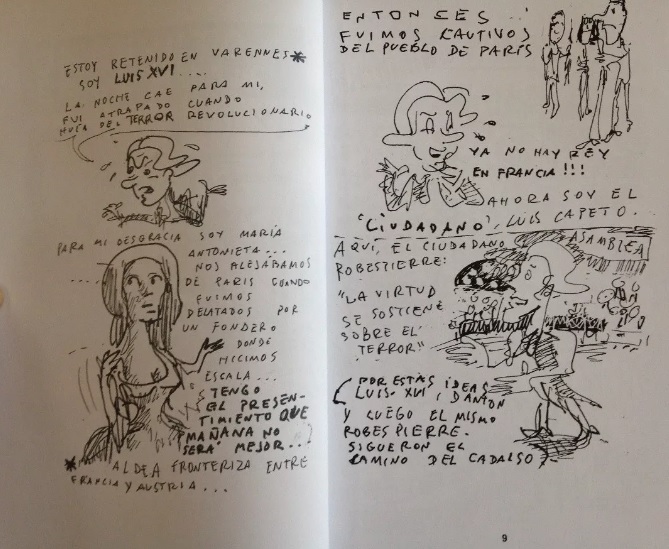 ESTOY RETENIDO EN VARENNES*
SOY LUIS XVI....
LA NOCHE CAE PARA MI,
FUI ATRAPADO CUANDO
HUÍA DEL TERROR REVOLUCIONARIO
PARA MI DESGRACIA SOY MARÍA
ANTONIETA...
NOS ALEJÁBAMOS
DE PARIS CUANDO
FUIMOS
DELATADOS POR
UN FONDERO
DONDE
HICIMOS
ESCALA...
TENGO
EL PRESEN-
TIMIENTO QUE
MAÑANA NO
SERÁ MEJOR...
* ALDEA FRONTERIZA ENTRE
FRANCIA Y AUSTRIA...
ENTONCES
FUIMOS CAUTIVOS
DEL PUEBLO DE PARÍS
YA NO HAY REY
EN FRANCIA!!!
AHORA SOY EL
"CIUDADANO", LUIS CAPETO.
AQUI, EL CIUDADANO
ROBESPIERRE:
ASAMBLEA
"LA VIRTUD
SE SOSTIENE
SOBRE EL
TERROR"
POR ESTAS IDEAS
LUIS XVI, DANTON
Y LUEGO EL MISMO
ROBESPIERRE.
SIGUERON EL
CAMINO DEL CADALSO
9